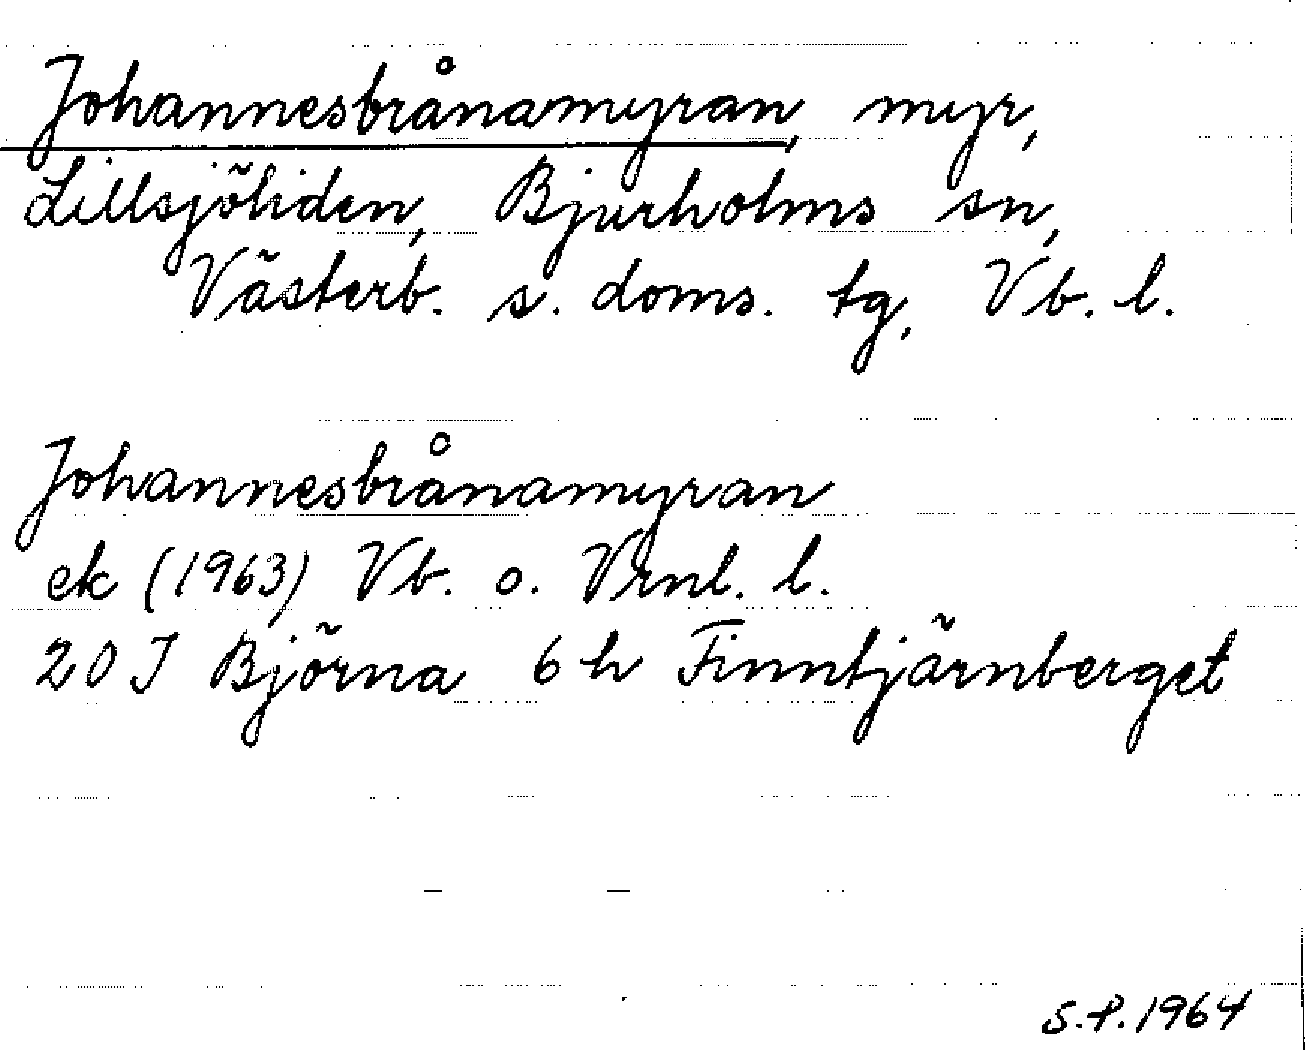 Johannesbrånamyran, myr,
Lillsjöliden, Bjurholms sn,
Västerb. s. doms. tg, Vb. l.
Johannesbrånamyran
ek (1963) Vb. o. Vrnl. l.
20 J Björna 6 h Finntjärnberget
S.P. 1964